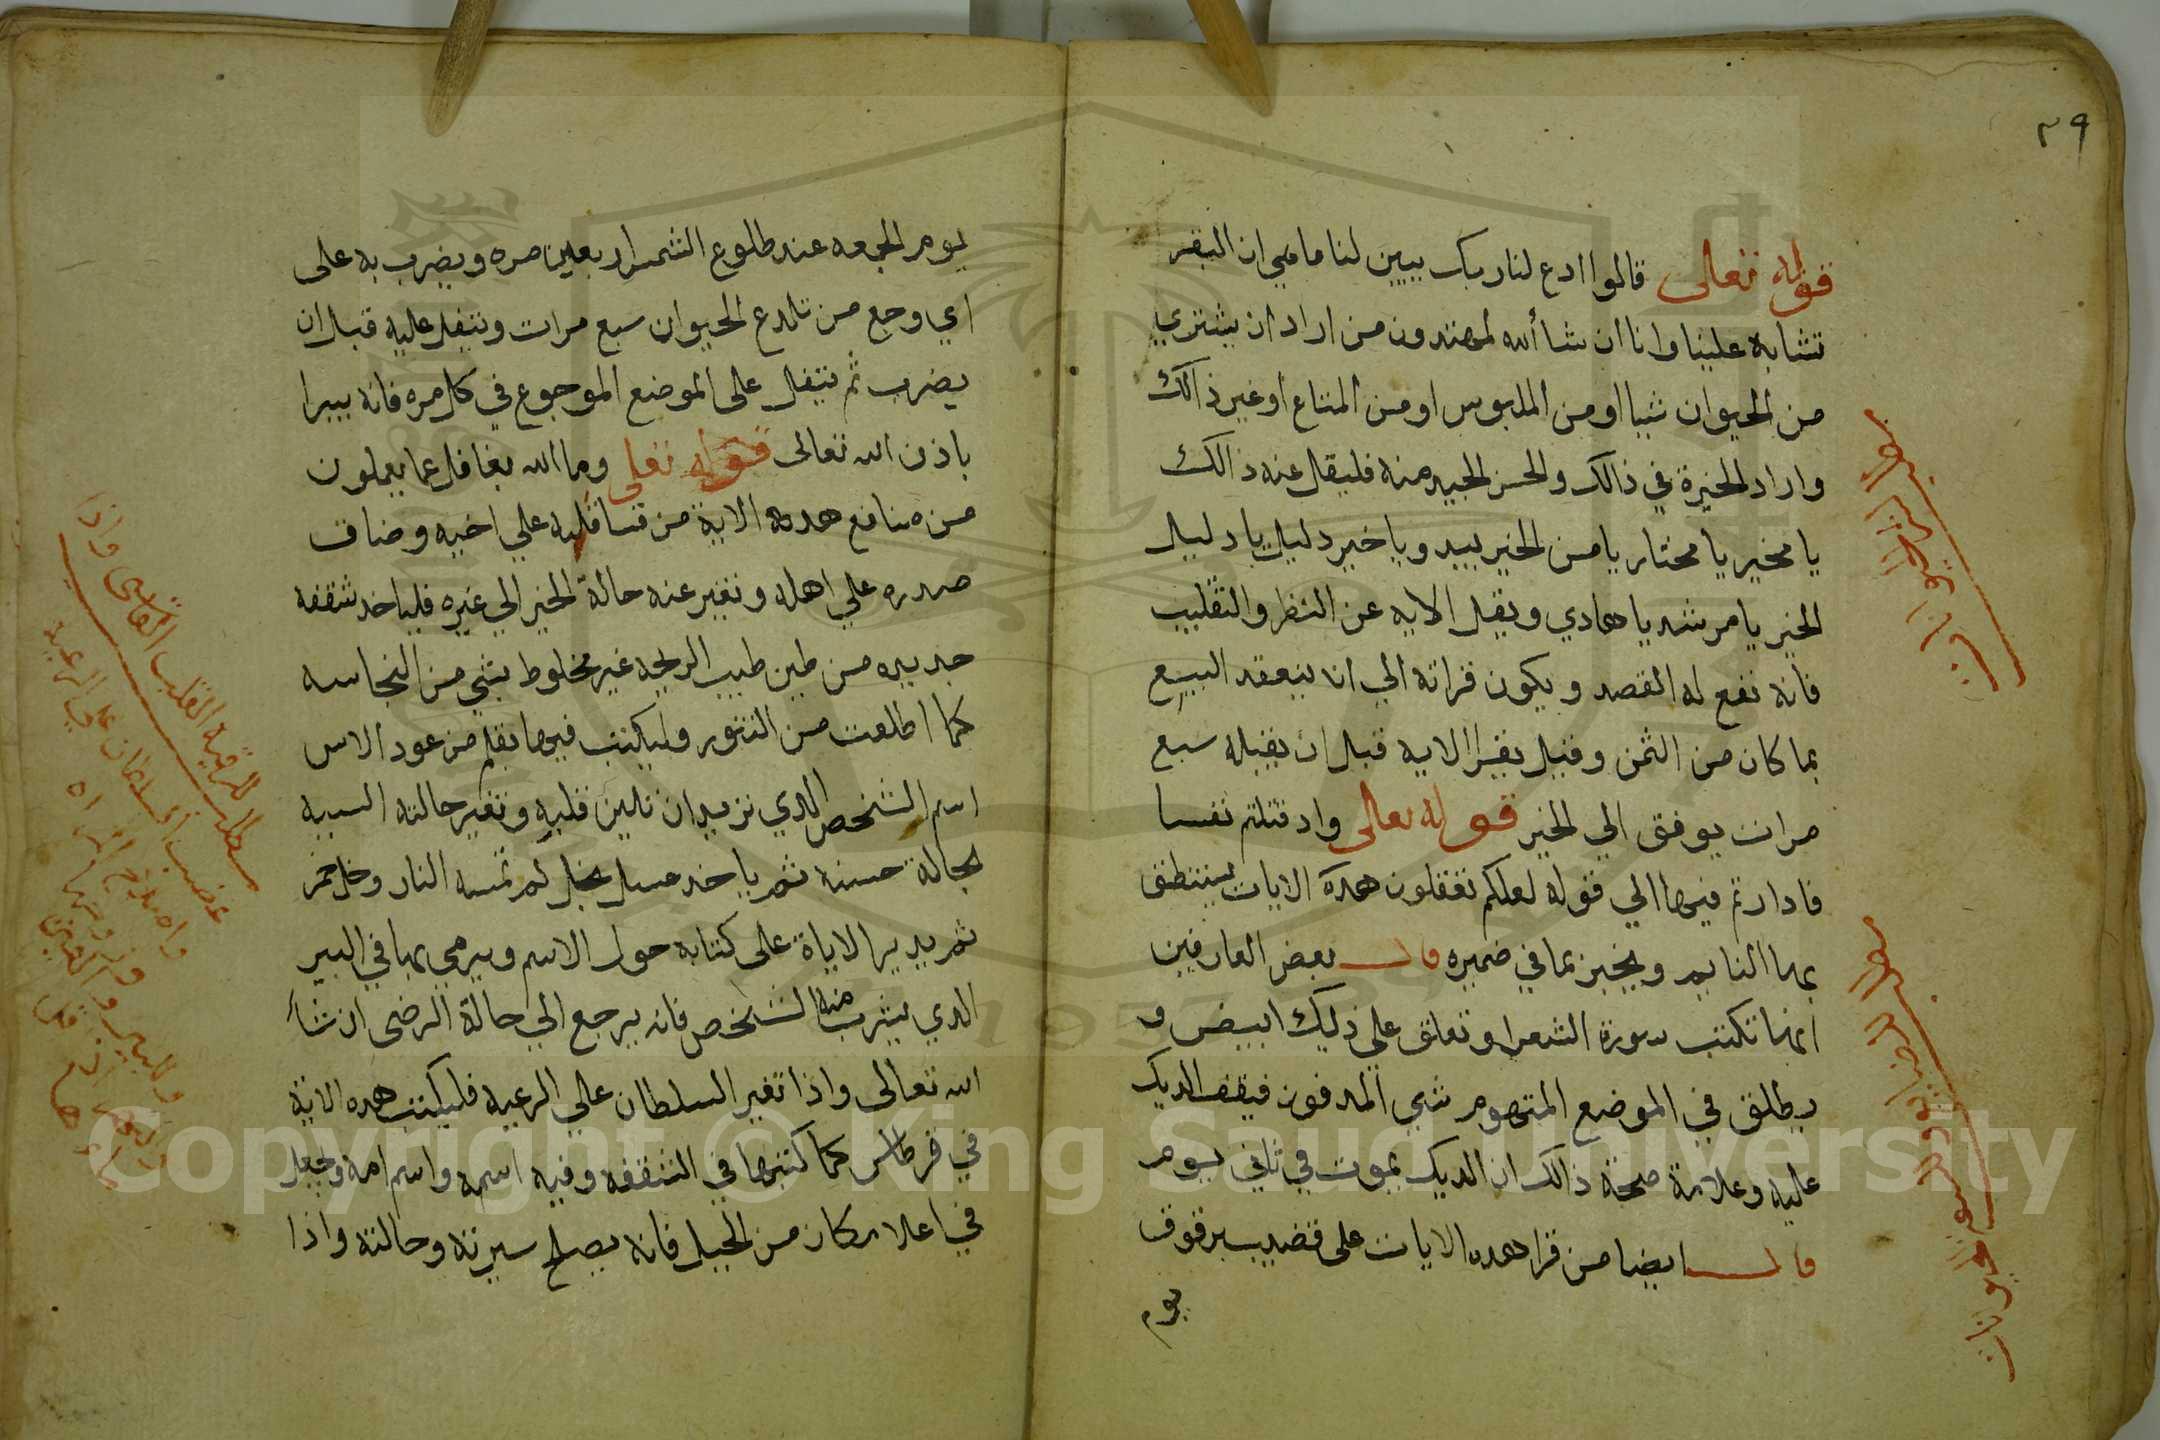 ٣٩
قوله تعالى قالوا ادع لنا ربك يبين لنا ما هي ان البقر
تشابه علينا وانا ان شا الله لمهتدون من اراد ان يشتري
من الحيوان شيا او من الملبوس او من المتاع او غير ذالك
واراد الخيرة في ذالك والحسن الجيد منه فليقل عنه ذالك
يا مخير يا مختار يا من الخير بيده ويا خير دليل يا دليل
الخير يا مرشد يا هادي ويقل الايه عن النظر والتقليب
فانه نفع له القصد ويكون قراته الي ان ينعقد البيع
بما كان من الثمن وقيل يقرا الايه قبل ان يقبله سبع
مرات يوفق الي الخير قوله تعالى واد قتلتم نفسا
فادارتم فيها الي قوله لعلكم تعقلون هده الايات يستنطق
بها النايم ويخبر بما في ضميره قال بعض العارفين
انها تكتب سورة الشعرا وتعلق علي ذيك ابيض و
يطلق في الموضع المتهوم شي المدفون فيقف الديك
عليه وعلامة صحة ذالك ان الديك يموت في ثاني يوم
قال ايضا من قرا هده الايات على قضيب برقوق
يوم
يوم الجمعه عند طلوع الشمس اربعين مره ويضرب به على
اي وجع من تلدع الحيوان سبع مرات ويتفل عليه قبل ان
يضرب ثم يتفل على الموضع الموجوع في كل مره فانه يبرا
باذن الله تعالى قوله تعلى وما الله بغافل عما يعملون
من منافع هده الاية من قسا قلبه علي اخيه وضاق
صدره علي اهله وتغير عنه حالة الخير الي غيره فلياخد شقفه
جديده من طين طيب الريحه غير مخلوط بشي من النجاسه
كما اطلعت من التنور وليكتب فيها بقلم من عود الاس
اسم الشخص الدي تريد ان تلين قلبه وتغير حالته السيه
بحالة حسنه ثم ياخد عسل نحل لم تمسه النار وخل خمر
ثم يدير الاياة على كتابه حول الاسم ويرمي بها في البير
الدي يشرب منه الشخص فانه يرجع الي حالة الرضى ان شا
الله تعالى واذا تغير السلطان علي الرعيه فليكتب هده الاية
في قرطاس كما كتبها في الشقفه وفيه اسمه واسم امه ويجعل
في اعلا مكان من الجبل فانه يصلح سيرته وحالته واذا
مطلب لترقيه القلب القاسي واذا
غضب السلطان علي الرعيه